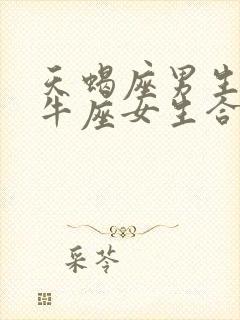 天蝎座男生
牛座女生合
采苓